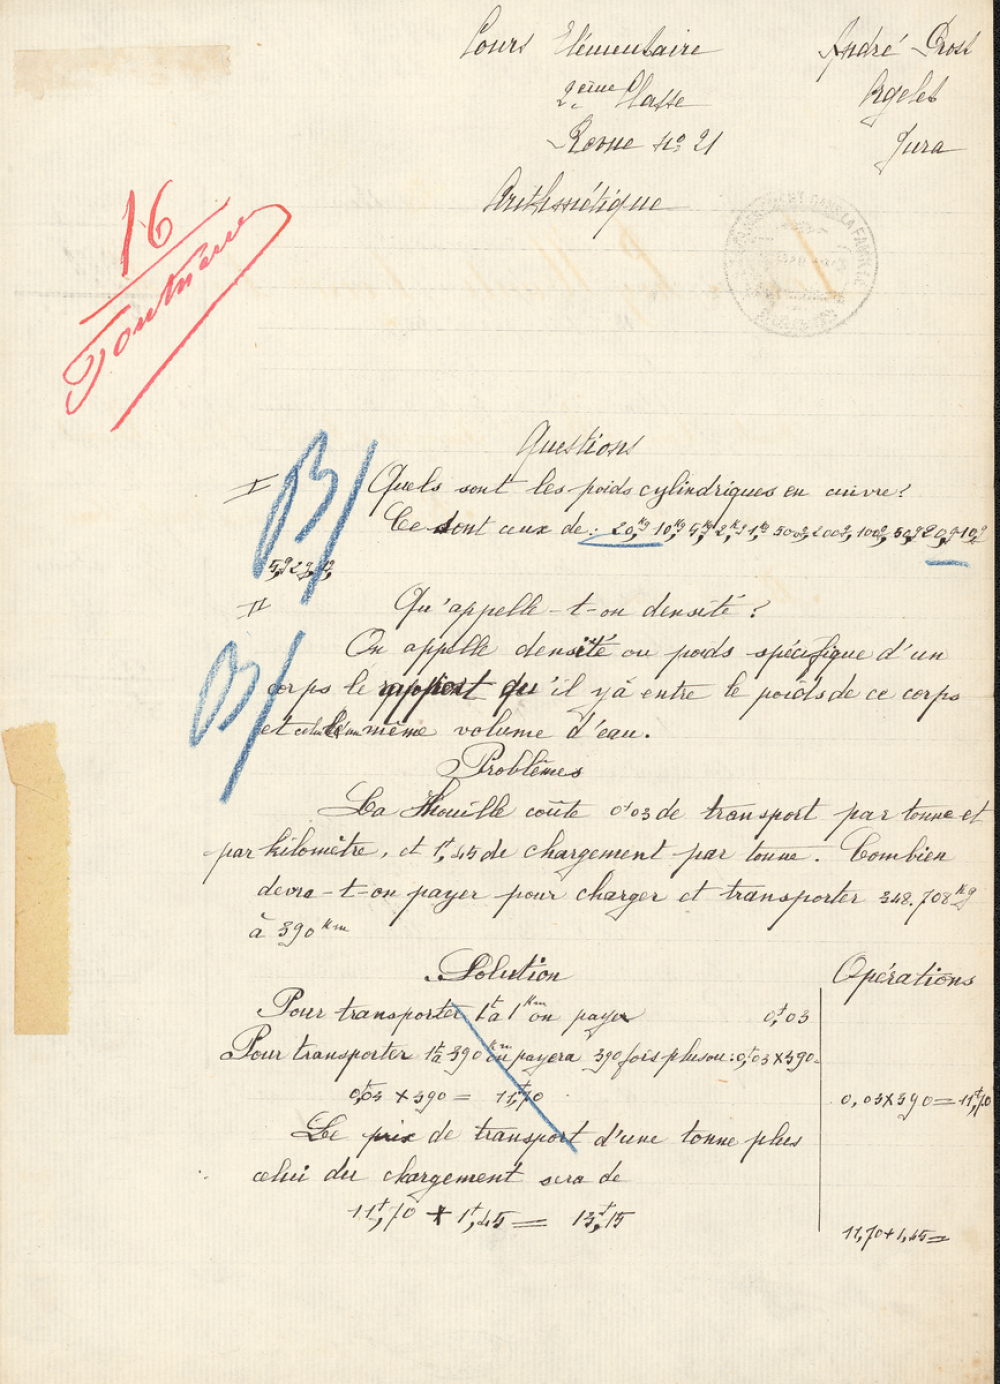 Cours Elémentaire
André Prost
2ème Classe
Orgelet
Revue No 21
Jura
Arithmétique
16
Questions
I Quels sont les poids cylindriques en cuivre?
Ce sont ceux de: 20,Kg 10,Kg 5,Kg 2,Kg 1,Kg 500g, 200g, 100g, 50g 20,g 10g
5,g 2g, 1g,
II Qu'appelle-t-on densité?
On appelle densité ou poids spécifique d'un
corps le rapport qu'il y à entre le poids de ce corps
et celui d'un même volume d'eau.
Problèmes
La Houille coûte 0f03 de transport par tonne et
par kilomètre, et 1f,45 de chargement par tonne. Combien
devra-t-on payer pour charger et transporter 348.708Kg
à 390Km
Solution
Opérations
Pour transporter 1t à 1Km on paye
0,f03
Pour transporter 1t à 390Km on payera 390 fois plus ou: 0,f03 x 390=
0,f03 x 390 = 11f,70
0,03x390=11f,70
Le prix de transport d'une tonne plus
celui du chargement sera de
11f,70 + 1f,45 = 13f,15
11,70+1,45=